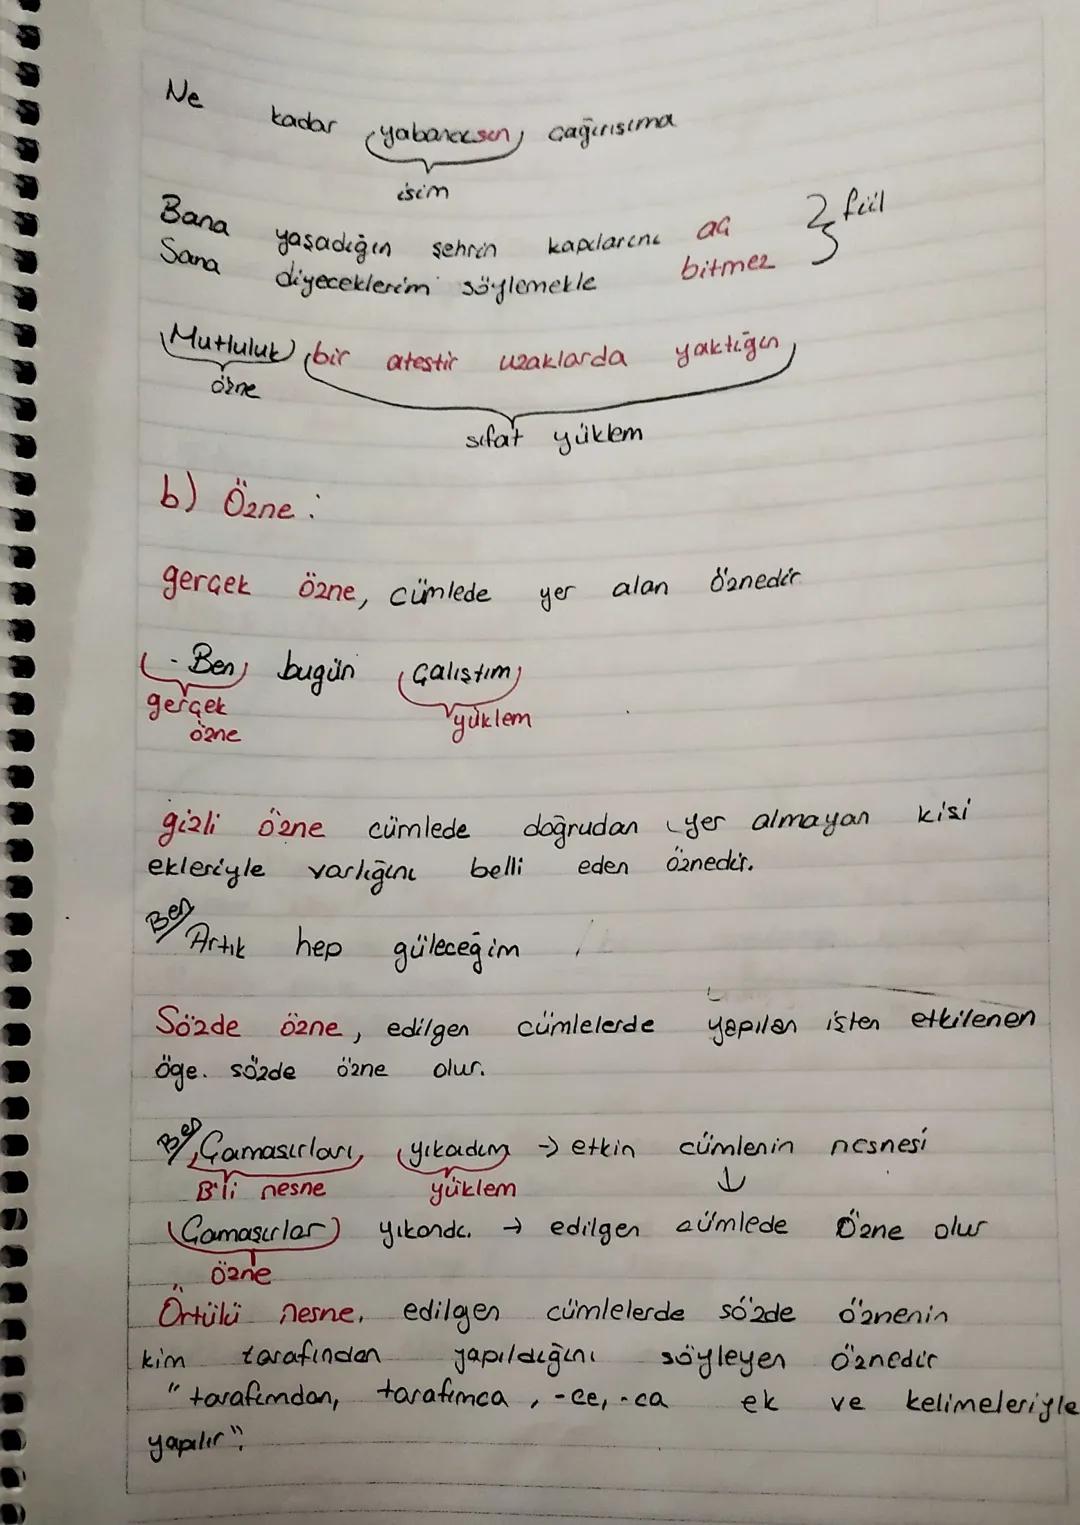 Ne kadar yabancısın çağırışıma
isim
Bana yaşadığın şehrin kapılarını aç
Sana diyeceklerim söylemekle bitmez
fiil
Mutluluk bir ateştir uzaklarda yaktığın
özne
sıfat yüklem
b) Özne :
gerçek özne, cümlede yer alan öznedir
- Ben bugün çalıştım
gerçek özne yüklem
gizli özne cümlede doğrudan yer almayan kişi
ekleriyle varlığını belli eden öznedir.
Ben
Artık hep güleceğim
Sözde özne, edilgen cümlelerde yapılan işten etkilenen
öge. sözde özne olur.
Ben
Çamaşırları yıkadım → etkin cümlenin nesnesi
B'li nesne yüklem ↓
Çamaşırlar yıkandı. → edilgen cümlede Özne olur
özne
Örtülü nesne, edilgen cümlelerde sözde öznenin
kim tarafından yapıldığını söyleyen öznedir
" tarafımdan, tarafımca , -ce, -ca ek ve kelimeleriyle
yapılır".